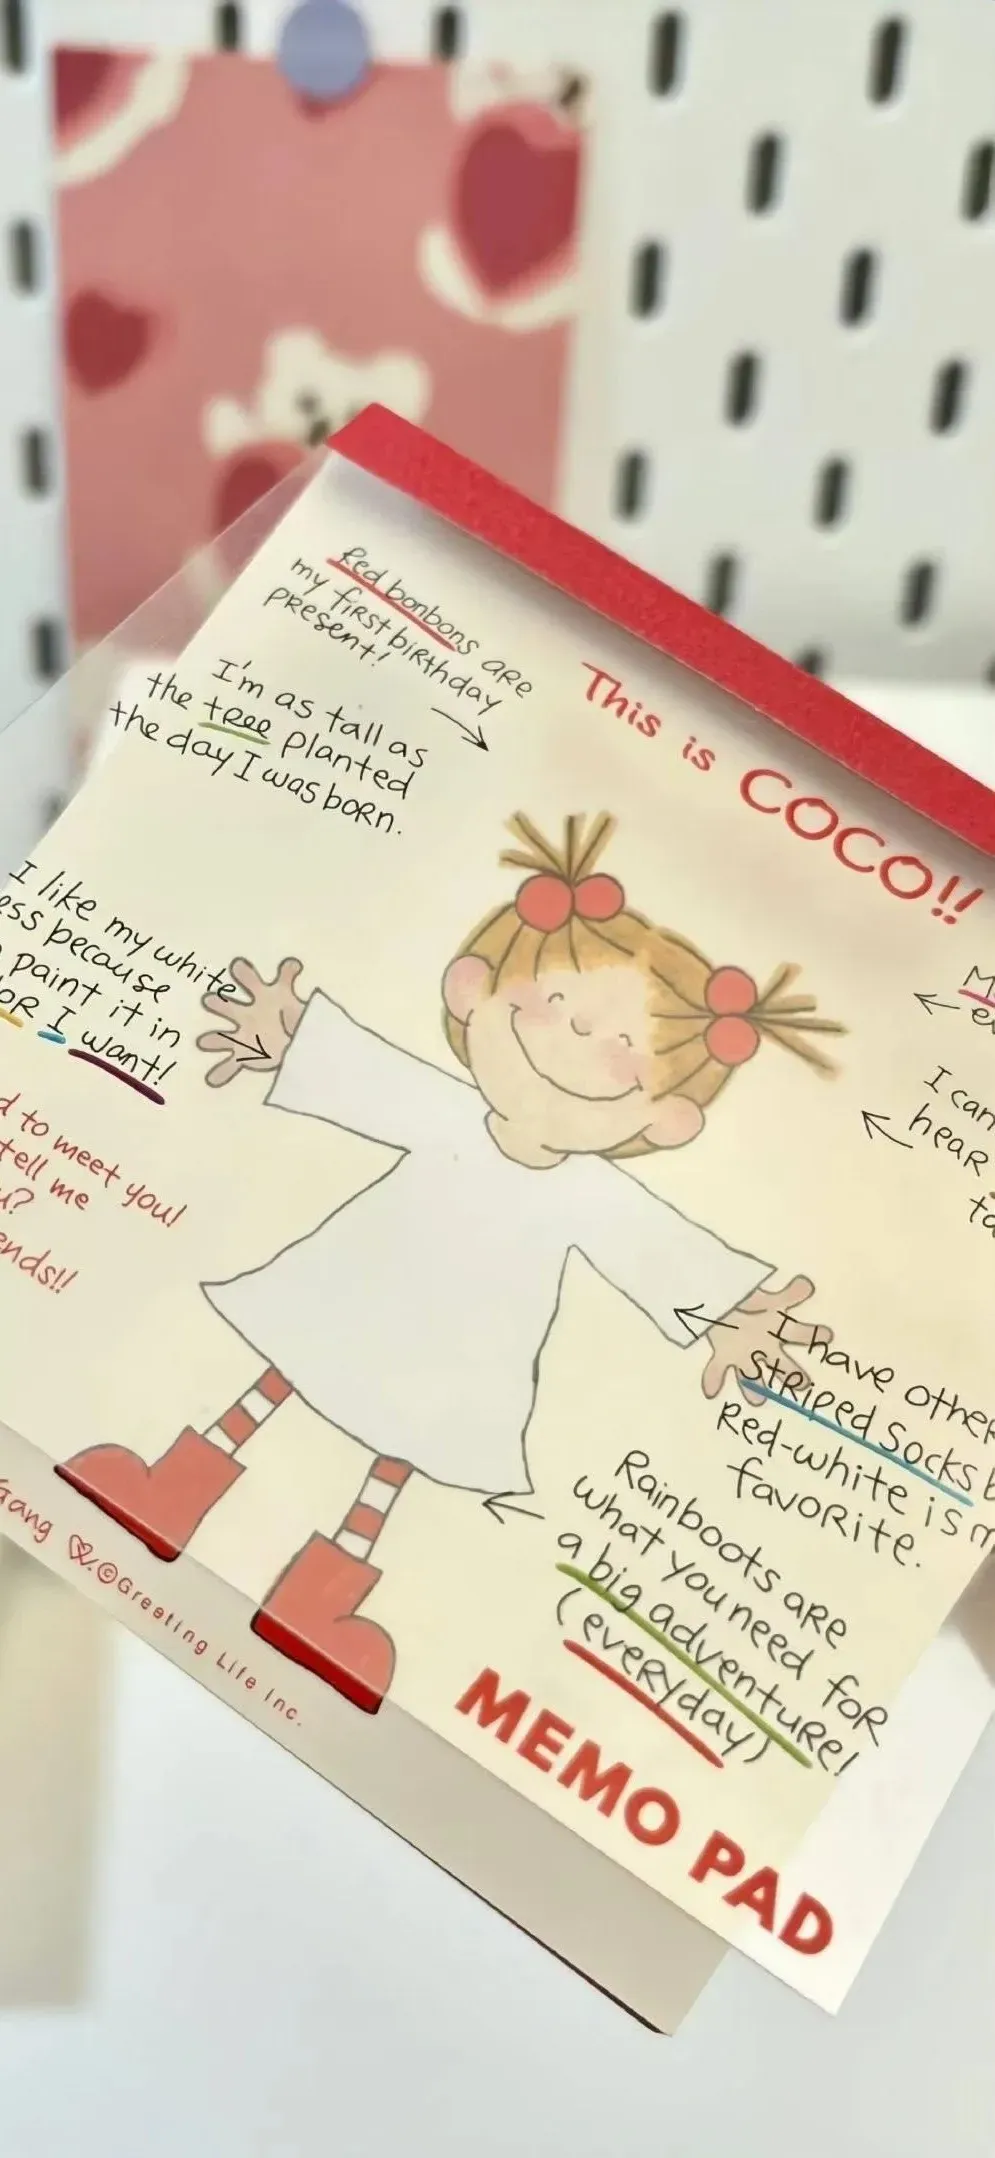 This is COCO!!
Red bonbons are
my first birthday
present!
I'm as tall as
the tree planted
the day I was born.
I like my white
because
paint it in
I want!
to meet you!
tell me
I can
hear
I have other
striped socks
Red-white is
favorite.
Rainboots are
what you need for
a big adventure!
(everyday)
MEMO PAD
Gang ©Greeting Life Inc.